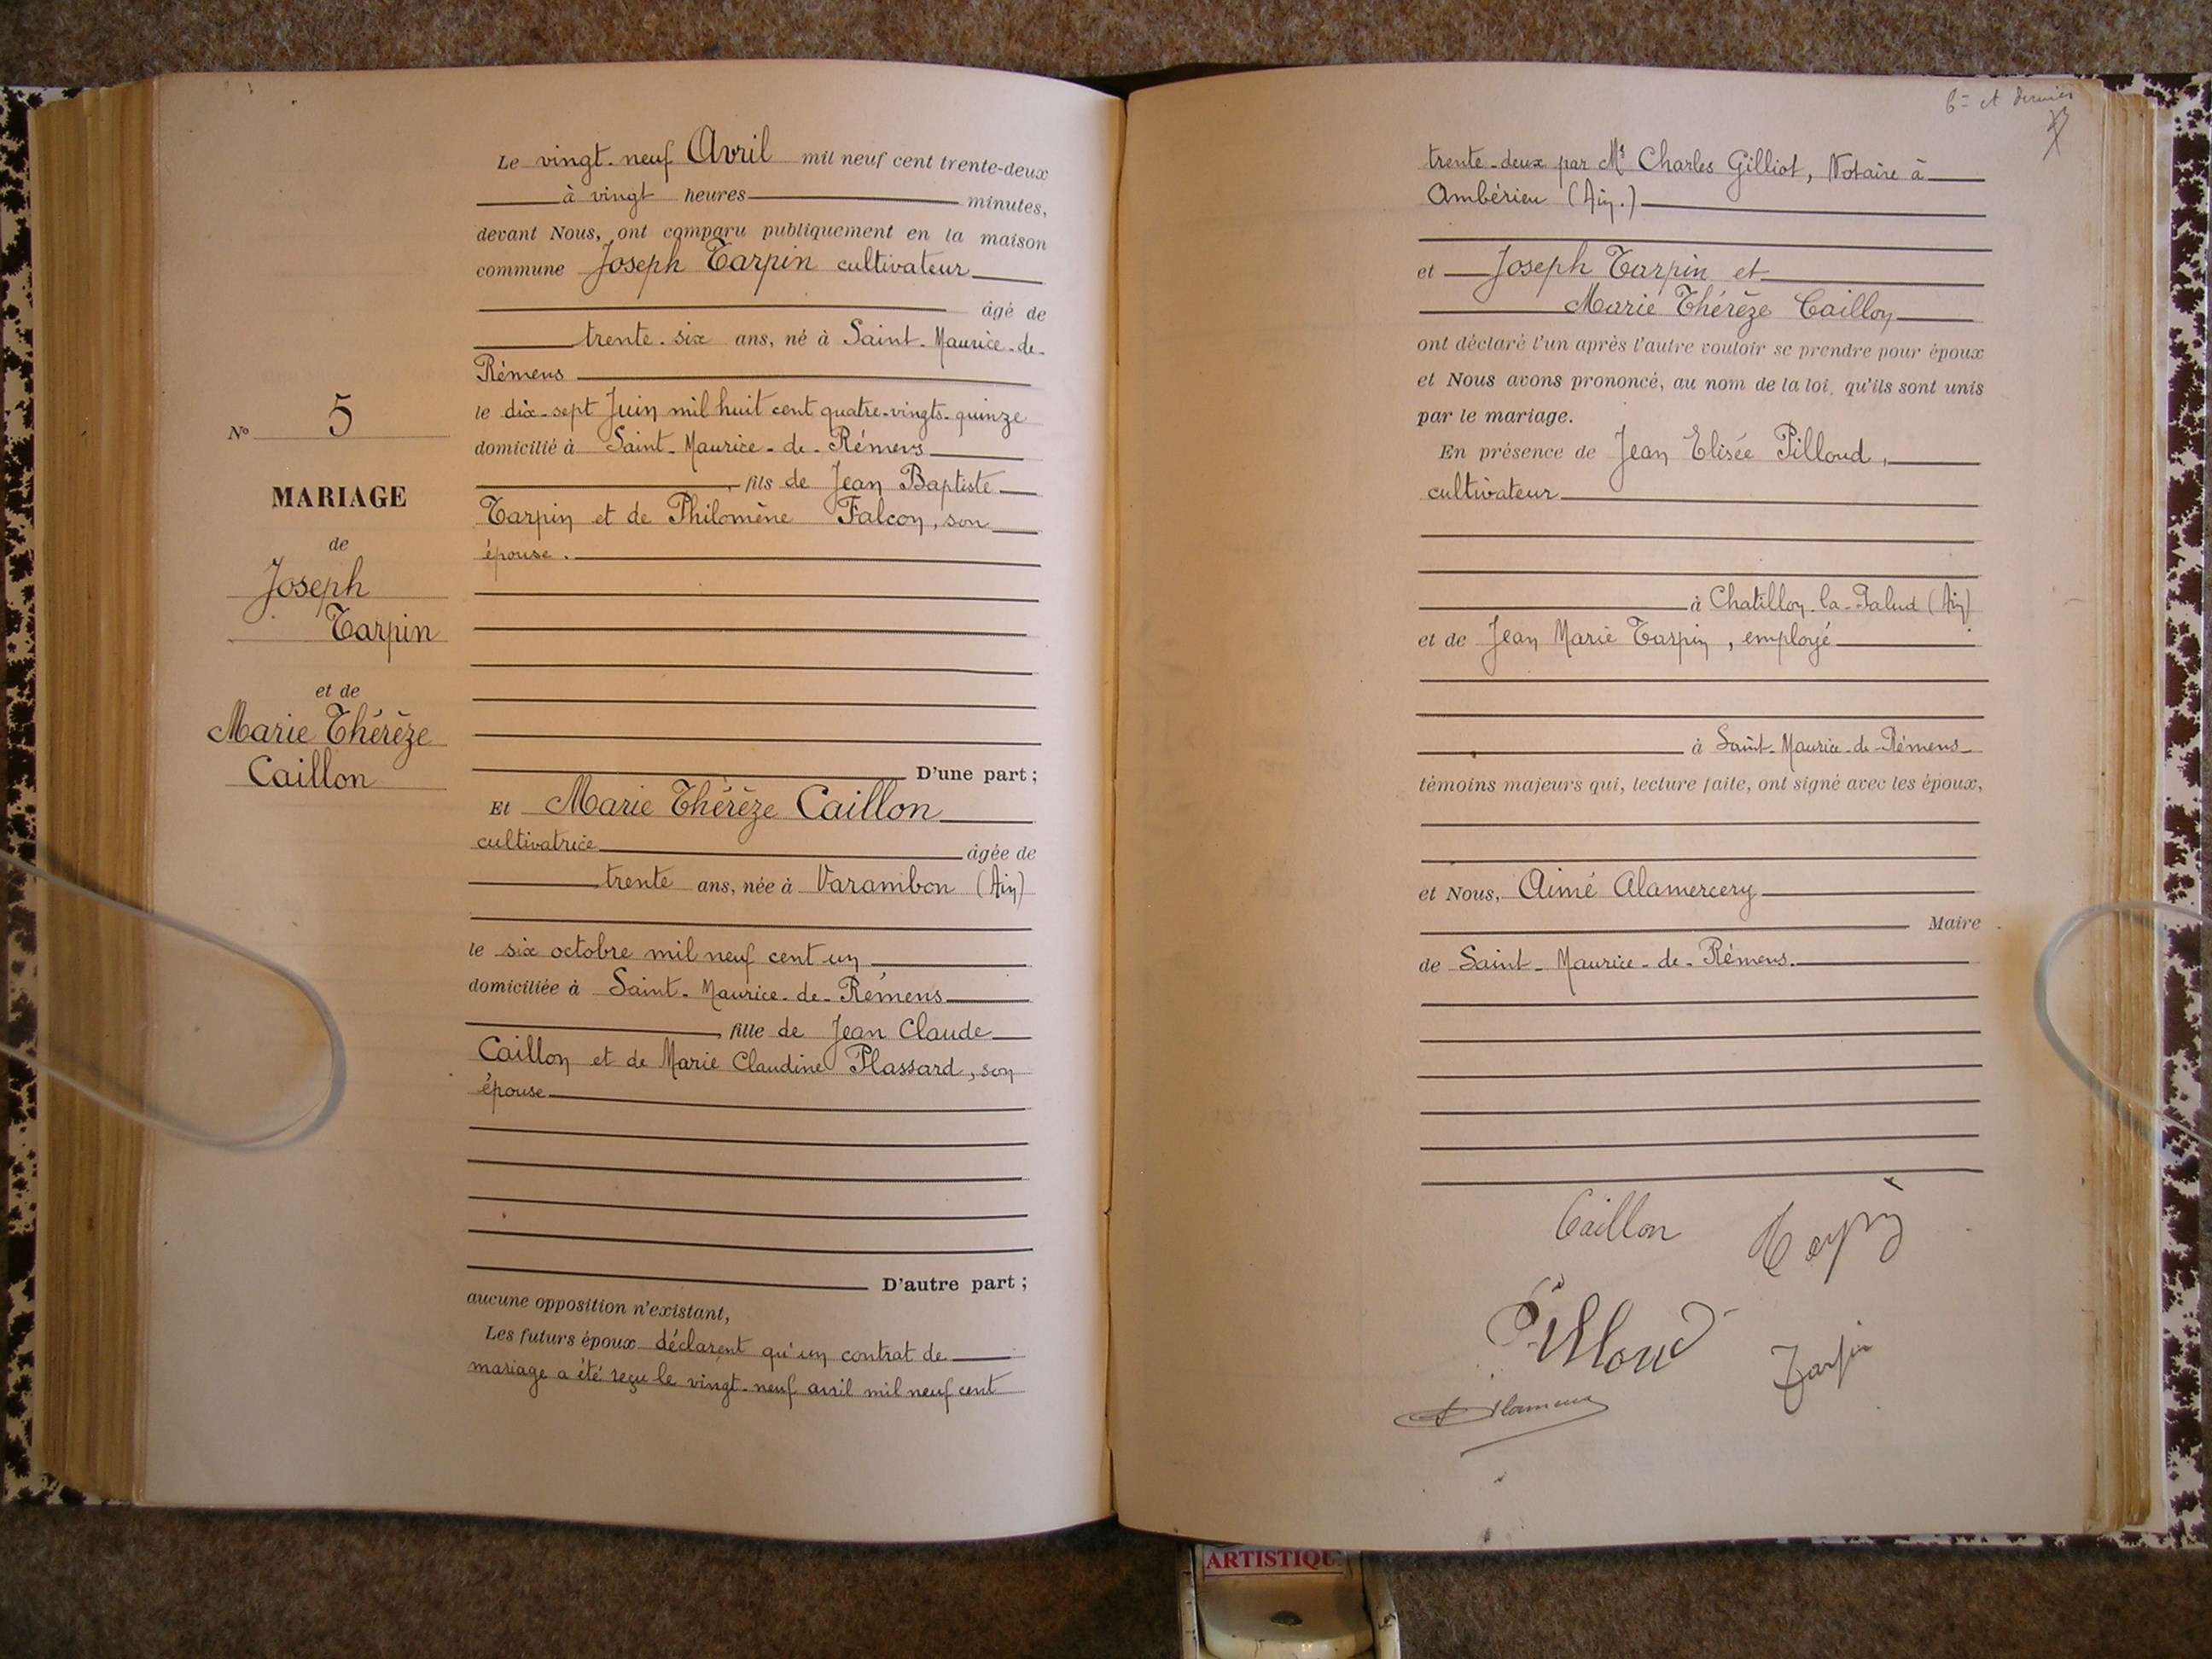 Le vingt-neuf Avril mil neuf cent trente-deux
à vingt heures minutes,
devant Nous, ont comparu publiquement en la maison
commune Joseph Tarpin cultivateur
âgé de
trente-six ans, né à Saint-Maurice-de-
Rémens
le dix-sept Juin mil huit cent quatre-vingts-quinze
domicilié à Saint-Maurice-de-Rémens
, fils de Jean Baptiste
Tarpin et de Philomène Falcon, son
épouse.
D'une part ;
No 5
MARIAGE
de
Joseph
Tarpin
et de
Marie Thérèze
Caillon
Et Marie Thérèze Caillon
cultivatrice âgée de
trente ans, née à Varambon (Ain)
le six octobre mil neuf cent un
domiciliée à Saint-Maurice-de-Rémens
, fille de Jean Claude
Caillon et de Marie Claudine Plassard, son
épouse
D'autre part ;
aucune opposition n'existant,
Les futurs époux déclarent qu'un contrat de
mariage a été reçu le vingt-neuf avril mil neuf cent
6= et dernier
trente-deux par Me Charles Gilliot, Notaire à
Ambérieu (Ain.)
et Joseph Tarpin et
Marie Thérèze Caillon
ont déclaré l'un après l'autre vouloir se prendre pour époux
et Nous avons prononcé, au nom de la loi, qu'ils sont unis
par le mariage.
En présence de Jean Elisée Pilloud,
cultivateur
à Chatillon-la-Palud (Ain)
et de Jean Marie Tarpin, employé
à Saint-Maurice-de-Rémens
témoins majeurs qui, lecture faite, ont signé avec les époux,
et Nous, Aimé Alamercery
Maire
de Saint-Maurice-de-Rémens.
Caillon Tarpin
Pilloud
Tarpin
ARTISTIQU